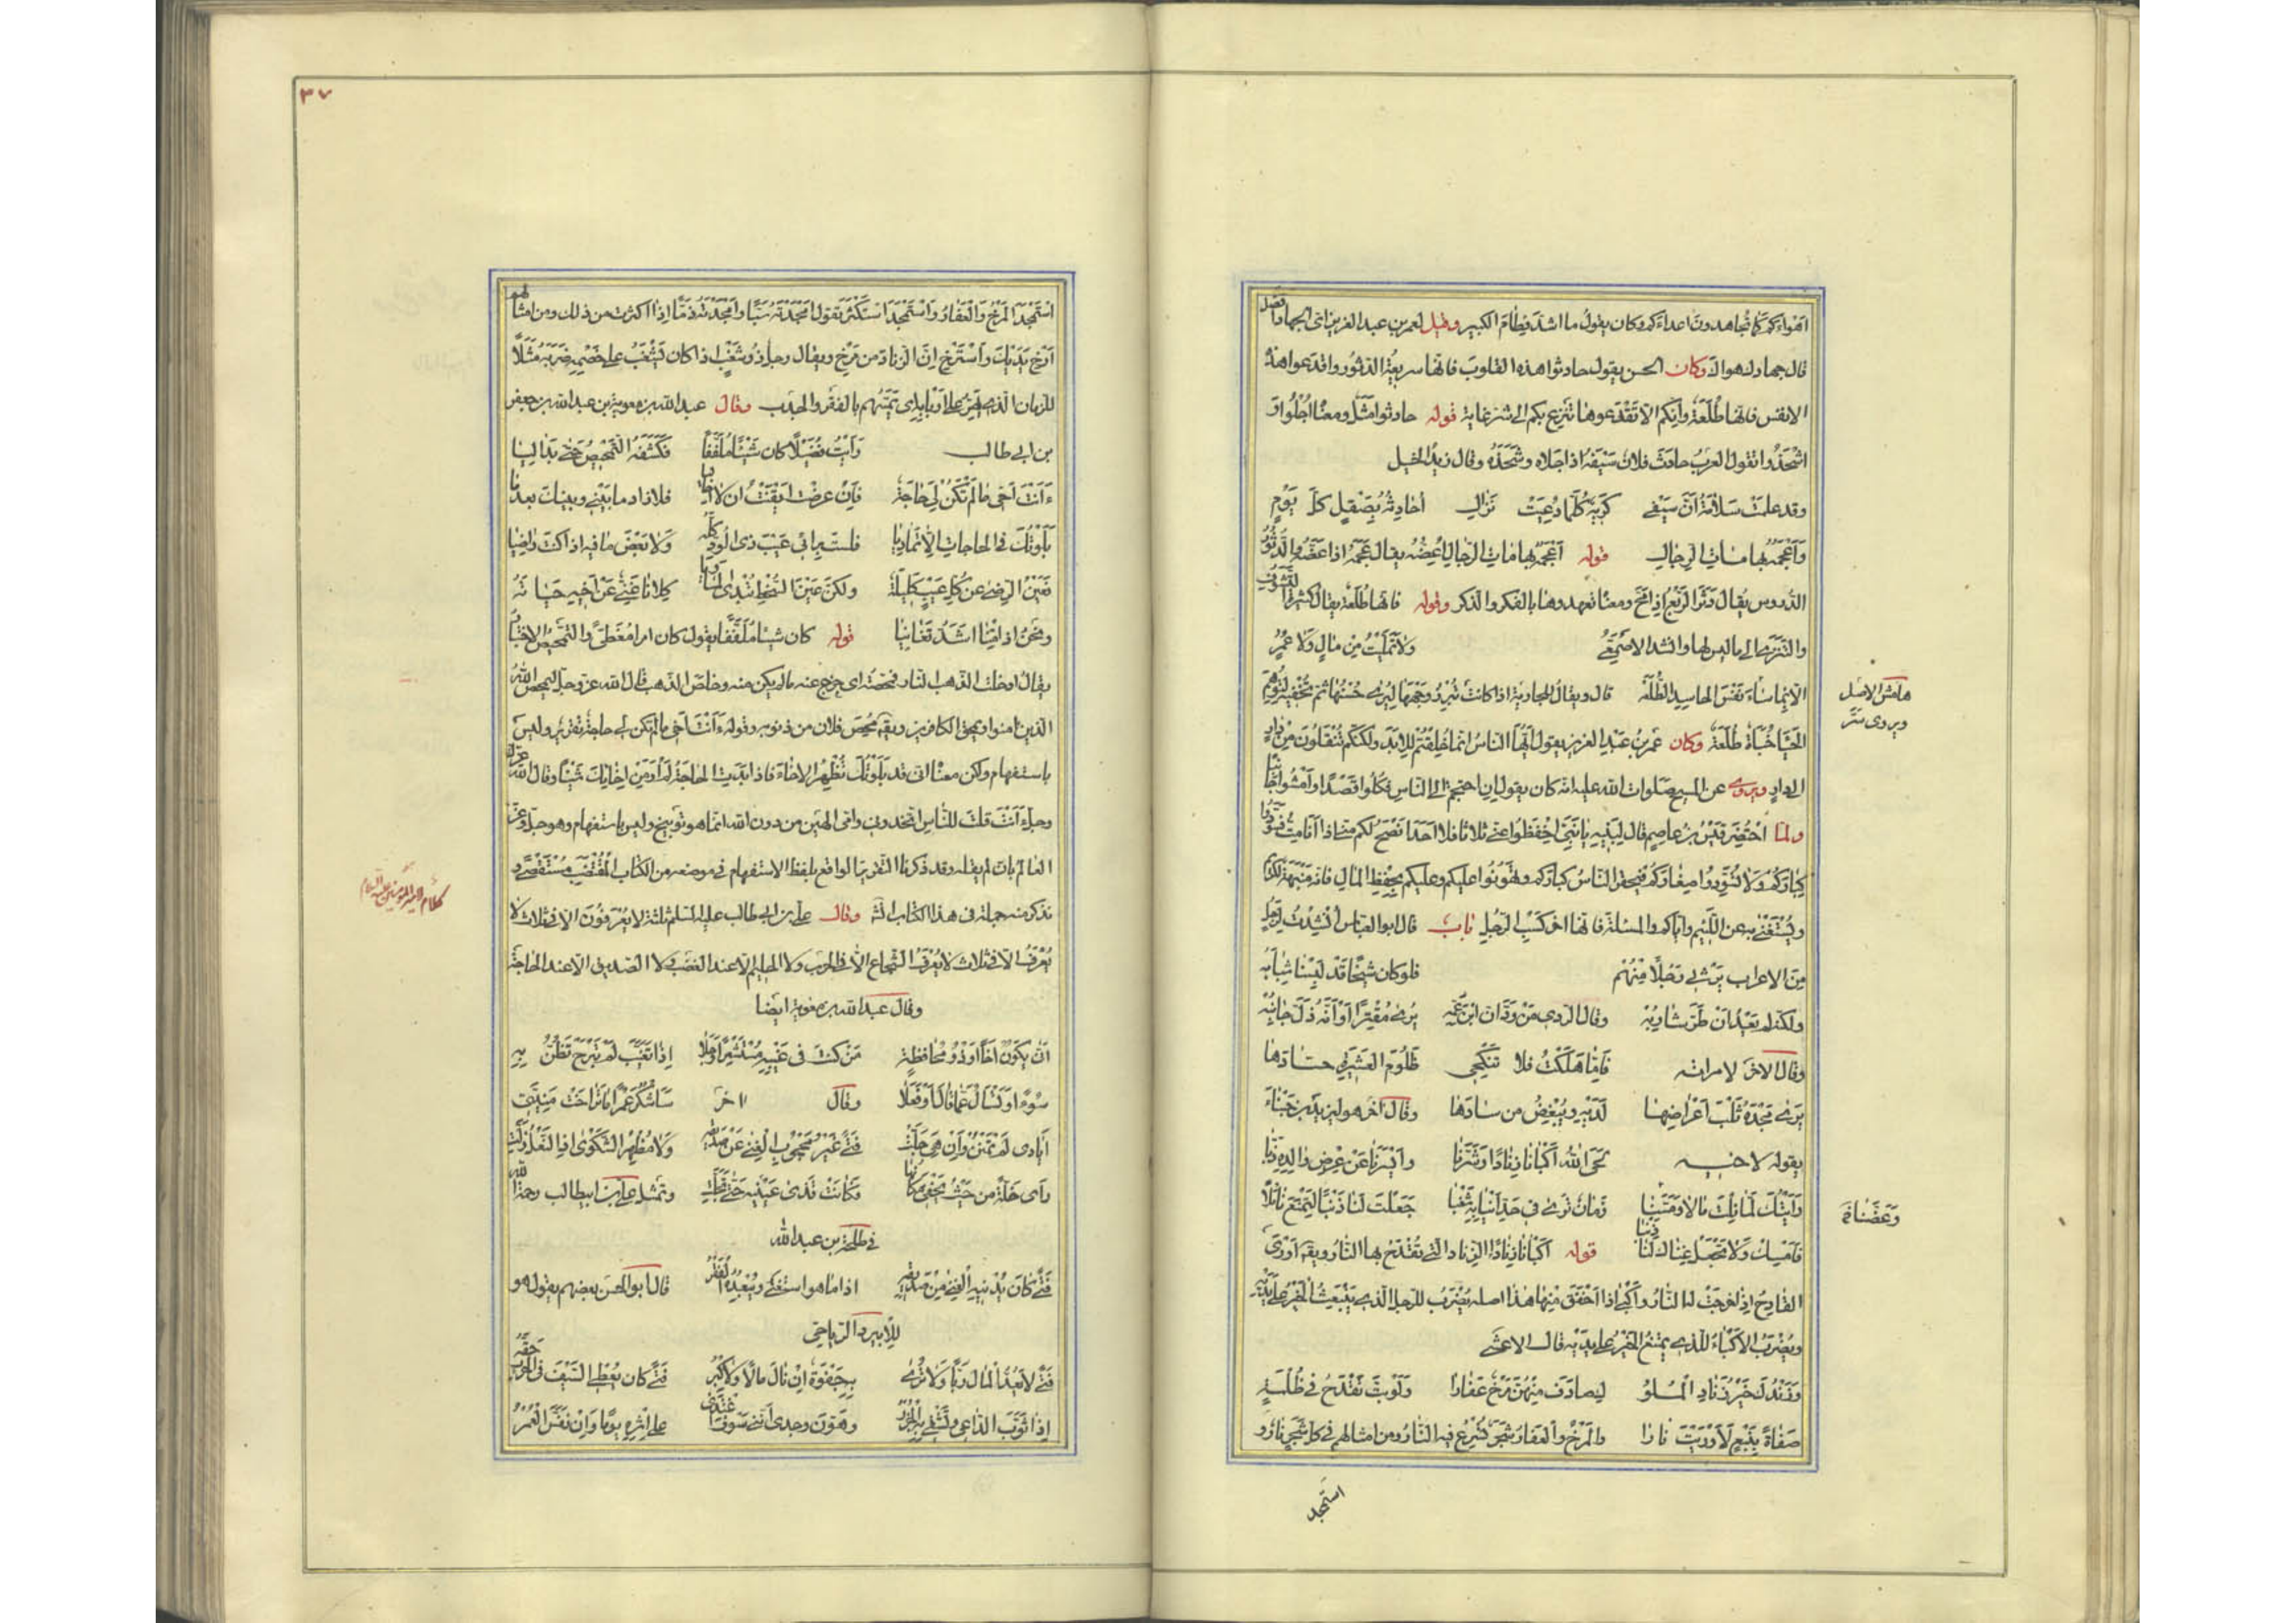 اهواءكم كما تجاهدون اعداءكم وكان يقول ما اشد فطام الكبير وقيل لعمر بن عبد العزيز اى الجهاد افضل
قال جهادك هواك وكان الحسن يقول حادثوا هذه القلوب فانها سريعة الدثور واقدعوا هذه
الانفس فانها طُلَعَة وانكم الا تقدعوها تنزع بكم الى شر غاية قوله حادثوا مثل ومعناه اجلوا و
اشحذوا تقول العرب حادث فلان سيفه اذا جلاه وشحذه وقال زيد الخيل
وقد علمت سلامة أن سيفى كريه كلما دعيت نزال أحادثه بصقل كل يوم
وأعجمه بهامات الرجال قوله أعجمه بهامات الرجال أعضه يقال عجمه اذا عضه والدثور
الدروس يقال دثر الربع اذا امّح ومعناه تعهدوها بالفكر والذكر وقوله فانها طلعة يقال كثيرة التشوف
والتنزى الى ما ليس لها وانشد الاصمعى ولا تمليت من مال ولا عمر
الا بما ساء نفس الحاسد الطلعة قال ويقال للجارية اذا كانت تبرز وجهها ليرى حسنها ثم تخفيه لتوهم
الحيا خُبَأة طُلَعة وكان عمر بن عبد العزيز يقول ايها الناس انما خلقتم للابد ولكنكم تنقلون من دار
الى دار ويروى عن المسيح صلوات الله عليه انه كان يقول ان احتجتم الى الناس فكلوا قصدا وامشوا جانبا
ولما احتضر قيس بن عاصم قال لبنيه يا بنى احفظوا عنى ثلاثا فلا احد انصح لكم منى اذا انا مت فسودوا
كباركم ولا تسودوا صغاركم فيحقر الناس كباركم وتهونوا عليهم وعليكم بحفظ المال فانه منبهة للكريم
ويستغنى به عن اللئيم واياكم والمسئلة فانها اخر كسب الرجل باب قال ابو العباس انشدت لرجل
من الاعراب يرثى رجلا منهم فلو كان شيخا قد لبسنا شبابه
ولكنه لم يعد ان طر شاربه وقال الردى من ودّ ان ابن عمه يرى مقترا او انه ذل جانبه
وقال الاخر لامراته فاما هلكت فلا تنكحى ظلوم العشيرة حسادها
يرى مجده ثلب اعراضها لديه ويبغض من سادها وقال اخر هو ليزيد بن حبناء
يقوله لاخيه لحى الله اكبانا زنادا وشرنا وايسرنا عن عرض والده ذبا
رأيتك لما نلت مالا ومسنا زمان ترى فى حد انيابه شغبا جعلت لنا ذنبا لتمنع نائلا
فامسك ولا تجعل غناك لنا ذنبا قوله اكبانا زنادا الزناد التى تقتدح بها النار ويقال اورى
القادح اذا خرجت له النار واكبى اذا اخفق منها هذا اصله يضرب للرجل الذى ينبعث الخير على يديه
ويضرب الاكباء للذى يمتنع الخير على يديه قال الاعشى
وزندك خير زناد الملو ليصادف منهن مرخ عفارا ولو بت تقدح فى ظلمة
صفاة بنبع لاوريت نارا والمرخ والعفار شجر تسرع فيه النار ومن امثالهم فى كل شجر نار و
استمجد
هامش الاصل
ويروى ستر
وعضنا
٣٧
استمجد المرخ والعفار واستمجد استكثر يقول امجدته سبا وامجدته ذما اذا اكثرت من ذلك ومن امثالهم
ارخ يديك واسترخ ان الزناد من مرخ ويقال رجل ذو شغب اذا كان يشغب على خصمه ضربه مثلا
للزمان الذى يتمنهم بالفقر والجدب وقال عبد الله بن معوية بن عبد الله بن جعفر
بن ابى طالب رأيت فضيلا كان شيئا ملففا فكشفه التمحيص حتى بدا ليا
ءأنت اخى ما لم تكن لى حاجة فان عرضت ايقنت ان لا اخا ليا فلا زاد ما بينى وبينك بعد ما
بلوتك فى الحاجات الا تماديا فلست براء عيب ذى الود كله ولا بعض ما فيه اذا كنت راضيا
فعين الرضى عن كل عيب كليلة ولكن عين السخط تبدى المساويا كلانا غنى عن اخيه حياته
ونحن اذا متنا اشد تغانيا قوله كان شيئا ملففا يقول كان امرا مغطى والتمحيص الاختبار
يقال ادخلت الذهب النار فمحصته اى خرج عنه ما لم يكن منه وخلص الذهب قال الله عز وجل ليمحص الله
الذين امنوا ويمحق الكافرين ويقال محص فلان من ذنوبه وقوله ءأنت اخى ما لم تكن لى حاجة تقرير وليس
باستفهام ولكن معناه انى قد بلوتك تظهر الاخاء فاذا بدت الحاجة لم ار من اخائك شيئا وقال الله عز
وجل ءأنت قلت للناس اتخذونى وامى الهين من دون الله انما هو توبيخ وليس باستفهام وهو جل وعز
العالم بان لم يقله وقد ذكرنا التقرير الواقع بلفظ الاستفهام فى موضعه من الكتاب المقتضب مستقصى و
نذكر منه جملة فى هذا الكتاب وقال على بن ابى طالب عليه السلم ثلثة لا يعرفون الا فى ثلاث لا
يعرف الا فى ثلاث لا يعرف الشجاع الا فى الحرب ولا الحليم الا عند الغضب ولا الصديق الا عند الحاجة
وقال عبد الله بن معوية ايضا
انى يكون اخا او ذو محافظة من كنت فى غيبه مستشعرا وجلا اذا تغيب لم تبرح تظن به
سوءا وتسأل عما قال او فعلا وقال اخر سأشكر عمرا ما تراخت منيتى
ايادى لم تمنن وان هى جلت فتى غير محجوب الغنى عن صديقه ولا مظهر الشكوى اذا النعل زلت
رأى خلتى من حيث يخفى مكانها فكانت قذى عينيه حتى تجلت وتمثل على بن ابيطالب رحمه الله
فى طلحة بن عبد الله
فتى كان يدنيه الغنى من صديقه اذا ما هو استغنى ويبعده الفقر قال ابو الحسن بعضهم يقول هو
للابيرد الرياحى
فتى لا يعد المال ربا ولا ترى به جفوة ان نال مالا ولا كبر فتى كان يعطى السيف فى الحرب حقه
اذا ثوب الداعى وتشقى به الجزر وهون وجدى اننى سوف اغتدى على اثره يوما وان نفس العمر
كلام امير المؤمنين عليه السلام